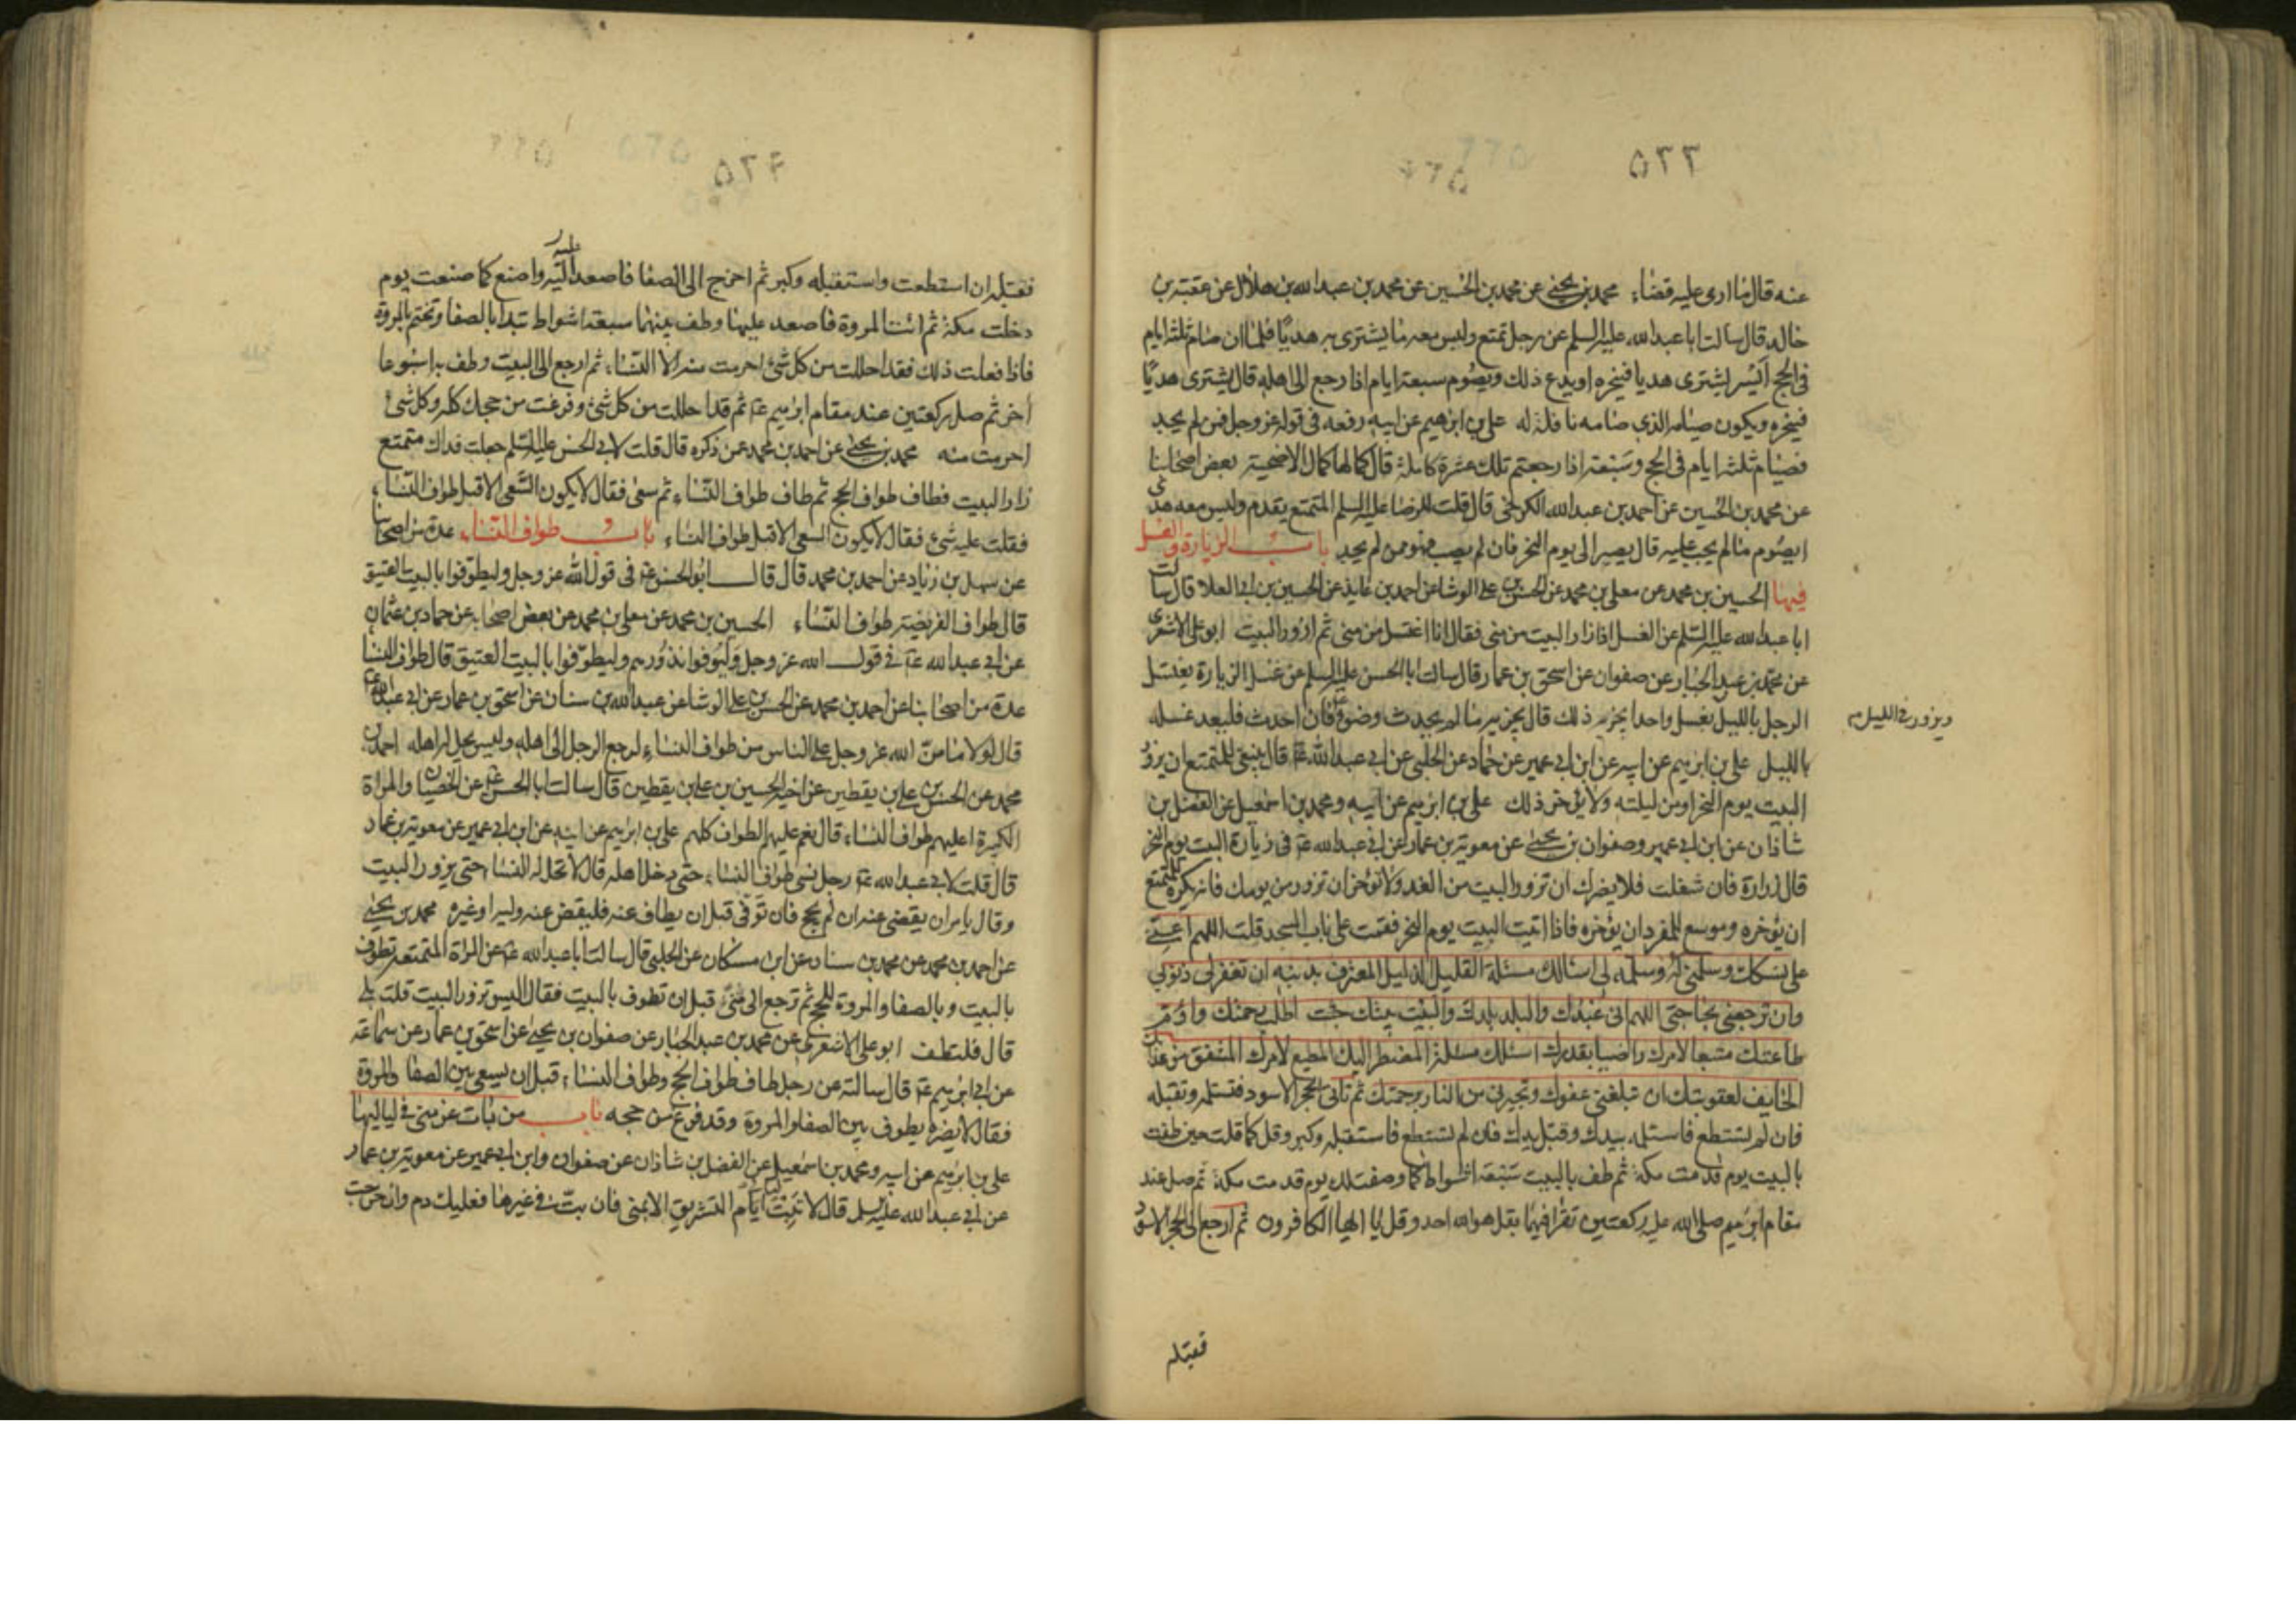 ٥٢٢
عنه قال ما ارى عليه قضاء محمد بن يحيى عن محمد بن الحسين عن محمد بن عبد الله بن هلال عن عقبة بن
خالد قال سالت ابا عبد الله عليه السلم عن رجل تمتع وليس معه ما يشترى به هديا فلما ان صام ثلثة ايام
فى الحج ايسر ايشترى هديا فينحره او يدع ذلك ويصوم سبعة ايام اذا رجع الى اهله قال يشترى هديا
فينحره ويكون صيامه الذى صامه نافلة له على بن ابرهيم عن ابيه رفعه فى قوله عز وجل فمن لم يجد
فصيام ثلثة ايام فى الحج وسبعة اذا رجعتم تلك عشرة كاملة قال كمالها كمال الاضحية بعض اصحابنا
عن محمد بن الحسين عن احمد بن عبد الله الكرخى قال قلت للرضا عليه السلم المتمتع يقدم وليس معه هدى
ايصوم ما لم يجب عليه قال يصبر الى يوم النحر فان لم يصب فهو ممن لم يجد باب الزيارة والغسل
فيها الحسين بن محمد عن معلى بن محمد عن الحسن بن على الوشا عن احمد بن عايذ عن الحسين بن ابى العلا قال سالت
ابا عبد الله عليه السلم عن الغسل اذا زار البيت من منى فقال انا اغتسل من منى ثم ازور البيت ابو على الاشعرى
عن محمد بن عبد الجبار عن صفوان عن اسحق بن عمار قال سالت ابا الحسن عليه السلم عن غسل الزيارة يغتسل
الرجل بالليل بغسل واحد ايجزيه ذلك قال يجزيه ما لم يحدث وضوء فان احدث فليعد غسله
ويزور فى الليل م
بالليل على بن ابرهيم عن ابيه عن ابن ابى عمير عن حماد عن الحلبى عن ابى عبد الله ع قال ينبغى للمتمتع ان يزور
البيت يوم النحر او من ليلته ولا يؤخر ذلك على بن ابرهيم عن ابيه ومحمد بن اسمعيل عن الفضل بن
شاذان عن ابن ابى عمير وصفوان بن يحيى عن معوية بن عمار عن ابى عبد الله ع فى زيارة البيت يوم النحر
قال زره فان شغلت فلا يضرك ان تزور البيت من الغد ولا تؤخر ان تزور من يومك فانه يكره للمتمتع
ان يؤخره وموسع للمفرد ان يؤخره فاذا اتيت البيت يوم النحر فقمت على باب المسجد قلت اللهم اعنى
على نسكك وسلمنى له وسلمه لى اسالك مسئلة القليل الذليل المعترف بذنبه ان تغفر لى ذنوبى
وان ترجعنى بحاجتى اللهم انى عبدك والبلد بلدك والبيت بيتك جئت اطلب رحمتك واؤم
طاعتك متبعا لامرك راضيا بقدرك اسئلك مسئلة المضطر اليك المطيع لامرك المشفق من عذابك
الخايف لعقوبتك ان تبلغنى عفوك وتجيرنى من النار برحمتك ثم تاتى الحجر الاسود فتستلمه وتقبله
فان لم تستطع فاستلمه بيدك وقبل يدك فان لم تستطع فاستقبله وكبر وقل كما قلت حين طفت
بالبيت يوم قدمت مكة ثم طف بالبيت سبعة اشواط كما وصفت لك يوم قدمت مكة ثم صل عند
مقام ابرهيم صلى الله عليه ركعتين تقرا فيهما بقل هو الله احد وقل يا ايها الكافرون ثم ارجع الى الحجر الاسود
فقبله
فقبله ان استطعت واستقبله وكبر ثم اخرج الى الصفا فاصعد اليه واصنع كما صنعت يوم
دخلت مكة ثم ائت المروة فاصعد عليها وطف بينهما سبعة اشواط تبدا بالصفا وتختم بالمروة
فاذا فعلت ذلك فقد احللت من كل شئ احرمت منه الا النساء ثم ارجع الى البيت وطف به اسبوعا
اخر ثم صل ركعتين عند مقام ابرهيم ع ثم قد احللت من كل شئ وفرغت من حجك كله وكل شئ
احرمت منه محمد بن يحيى عن احمد بن محمد عمن ذكره قال قلت لابى الحسن عليه السلم جعلت فداك متمتع
زار البيت فطاف طواف الحج ثم طاف طواف النساء ثم سعى فقال لا يكون السعى الا قبل طواف النساء
فقلت عليه شئ فقال لا يكون السعى الا قبل طواف النساء باب طواف النساء عدة من اصحابنا
عن سهل بن زياد عن احمد بن محمد قال قال ابو الحسن ع فى قول الله عز وجل وليطوفوا بالبيت العتيق
قال طواف الفريضة طواف النساء الحسين بن محمد عن معلى بن محمد عن بعض اصحابه عن حماد بن عثمان
عن ابى عبد الله ع فى قول الله عز وجل وليوفوا نذورهم وليطوفوا بالبيت العتيق قال طواف النسا
عدة من اصحابنا عن احمد بن محمد عن الحسن بن على الوشا عن عبد الله بن سنان عن اسحق بن عمار عن ابى عبد الله ع
قال لولا ما من الله عز وجل على الناس من طواف النساء لرجع الرجل الى اهله وليس يحل له اهله احمد بن
محمد عن الحسن بن على بن يقطين عن اخيه الحسين بن على بن يقطين قال سالت ابا الحسن ع عن الخصيان والمراة
الكبيرة اعليهم طواف النساء قال نعم عليهم الطواف كلهم على بن ابرهيم عن ابيه عن ابن ابى عمير عن معوية بن عمار
قال قلت لابى عبد الله ع رجل نسى طواف النساء حتى دخل اهله قال لا تحل له النسا حتى يزور البيت
وقال يامر ان يقضى عنه ان لم يحج فان توفى قبل ان يطاف عنه فليقض عنه وليه او غيره محمد بن يحيى
عن احمد بن محمد عن محمد بن سنان عن ابن مسكان عن الحلبى قال سالت ابا عبد الله ع عن المراة المتمتعة تطوف
بالبيت وبالصفا والمروة للحج ثم ترجع الى منى قبل ان تطوف بالبيت فقال اليس تزور البيت قلت بلى
قال فلتطف ابو على الاشعرى عن محمد بن عبد الجبار عن صفوان بن يحيى عن اسحق بن عمار عن سماعة
عن ابى ابرهيم ع قال سالته عن رجل طاف طواف الحج وطواف النساء قبل ان يسعى بين الصفا والمروة
فقال لا يضره يطوف بين الصفا والمروة وقد فرغ من حجه باب من بات عن منى فى لياليها
على بن ابرهيم عن ابيه ومحمد بن اسمعيل عن الفضل بن شاذان عن صفوان وابن ابى عمير عن معوية بن عمار
عن ابى عبد الله عليه السلم قال لا تبت ايام التشريق الا بمنى فان بت فى غيرها فعليك دم وان خرجت